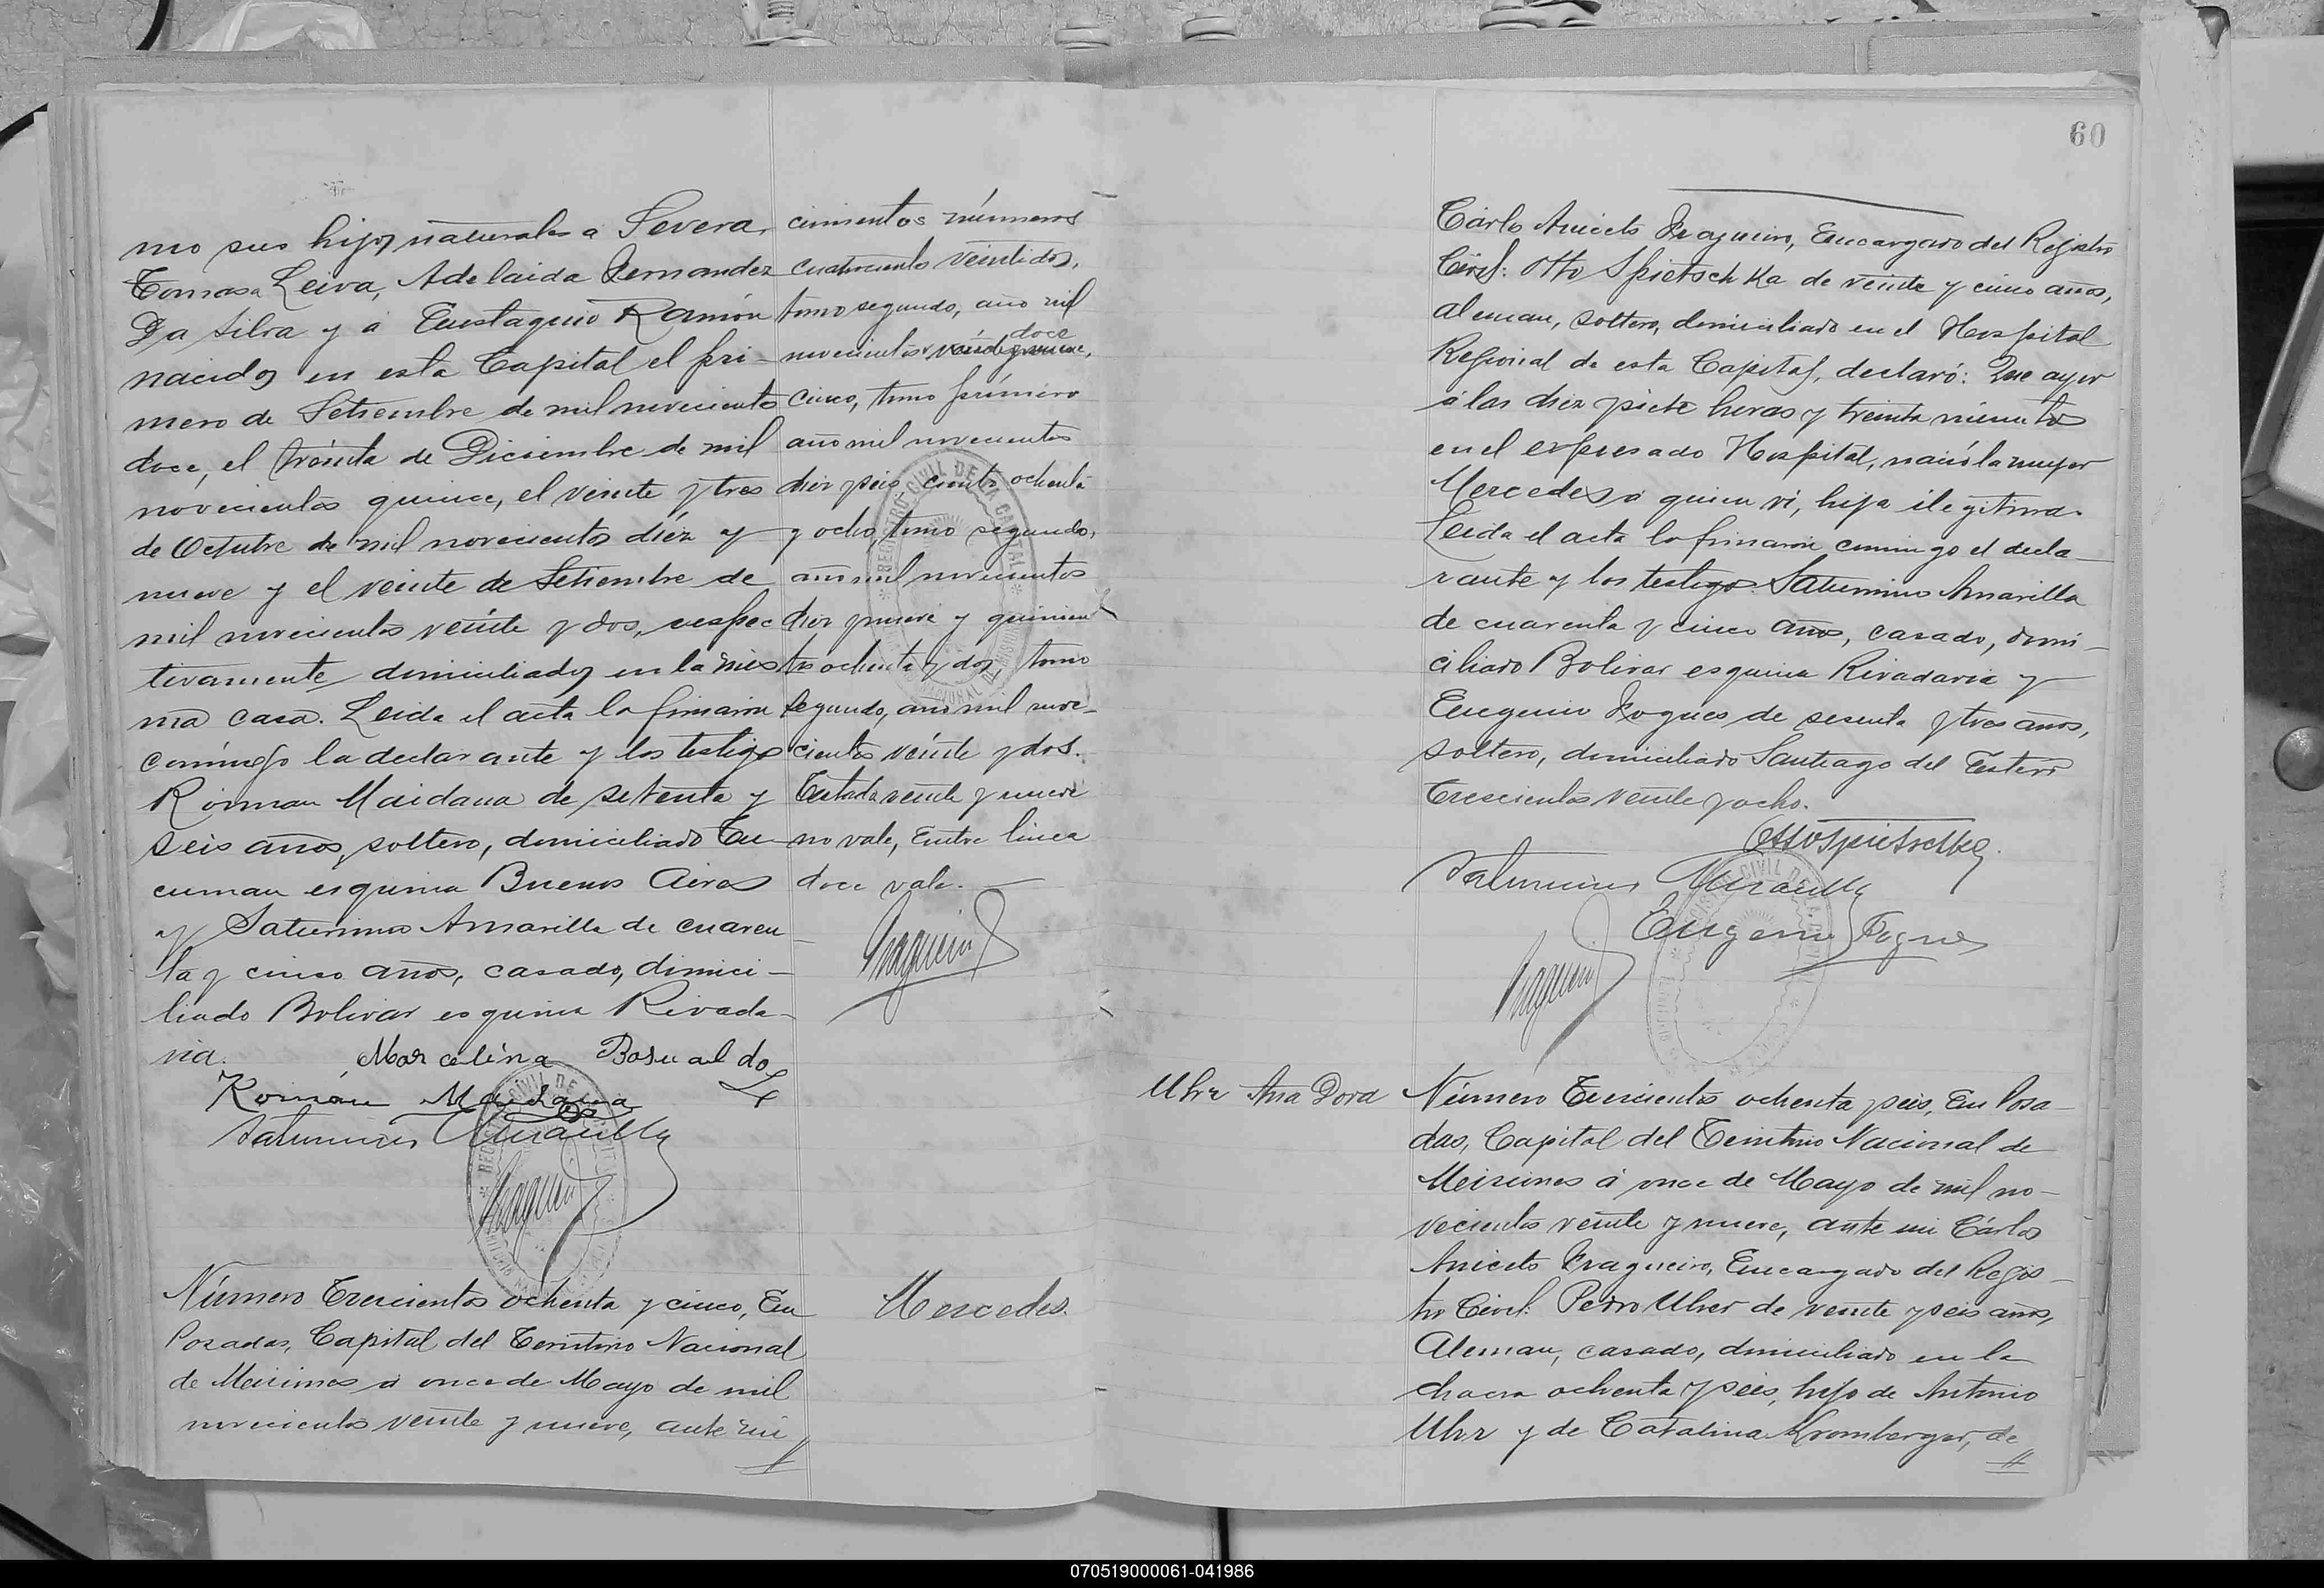 mo sus hijos naturales a Severa,
Tomasa Leiva, Adelaida Fernandez
Da Silva y á Eustaquio Ramón
nacidos en esta Capital el pri-
mero de Setiembre de mil novecientos
doce, el treinta de Diciembre de mil
novecientos quince, el veinte y tres
de Octubre de mil novecientos diez y
nueve y el veinte de Setiembre de
mil novecientos veinte y dos, respec
tivamente domiciliados en la mis
ma casa. Leida el acta la firmaron
conmigo la declarante y los testigos
Róman Maidana de setenta y
seis años, soltero, domiciliado Tu-
cuman esquina Buenos Aires
y Saturnino Amarilla de cuaren-
ta y cinco años, casado, domici-
liado Bolivar esquina Rivada-
via.
Marcelina Basualdo
Román Maidana
Saturnino Amarilla
Fragueiro
REGISTRO CIVIL DE LA CAPITAL
cimientos números
cuatrocientos veintidos,
tomo segundo, año mil
doce
novecientos veinte y nueve,
cinco, tomo primero
año mil novecientos
diez y seis, ciento ochenta
y ocho, tomo segundo,
año mil novecientos
diez y nueve y quinien
tos ochenta y dos tomo
segundo, año mil nove-
cientos veinte y dos.
Testado veinte y nueve
no vale, Entre linea
doce vale.
Fragueiro
REGISTRO CIVIL DE LA CAPITAL
Número Trescientos ochenta y cinco, En
Posadas, Capital del Territorio Nacional
de Misiones á once de Mayo de mil
novecientos veinte y nueve, ante mi
Mercedes.
60
Cárlos Aniceto Fragueiro, Encargado del Registro
Civil: Otto Spietschka de veinte y cinco años,
aleman, soltero, domiciliado en el Hospital
Regional de esta Capital, declaró: Que ayer
á las diez y siete horas y treinta minutos
en el expresado Hospital, nació la mujer
Mercedes á quien vi, hija ilegitima.
Leida el acta la firmaron conmigo el decla-
rante y los testigos Saturnino Amarilla
de cuarenta y cinco años, casado, domi-
ciliado Bolivar esquina Rivadavia y
Eugenio Fogues de sesenta y tres años,
soltero, domiciliado Santiago del Estero
Trescientos veinte y ocho.
Otto Spietschka
Saturnino Amarilla
Eugenio Fogues
Fragueiro
Uhr Ana Dora
Número Trescientos ochenta y seis, En Posa-
das, Capital del Territorio Nacional de
Misiones á once de Mayo de mil no-
vecientos veinte y nueve, ante mi Cárlos
Aniceto Fragueiro, Encargado del Regis-
tro Civil: Pedro Uhr de veinte y seis años,
Aleman, casado, domiciliado en la
chacra ochenta y seis, hijo de Antonio
Uhr y de Catalina Kromberger, de
070519000061-041986